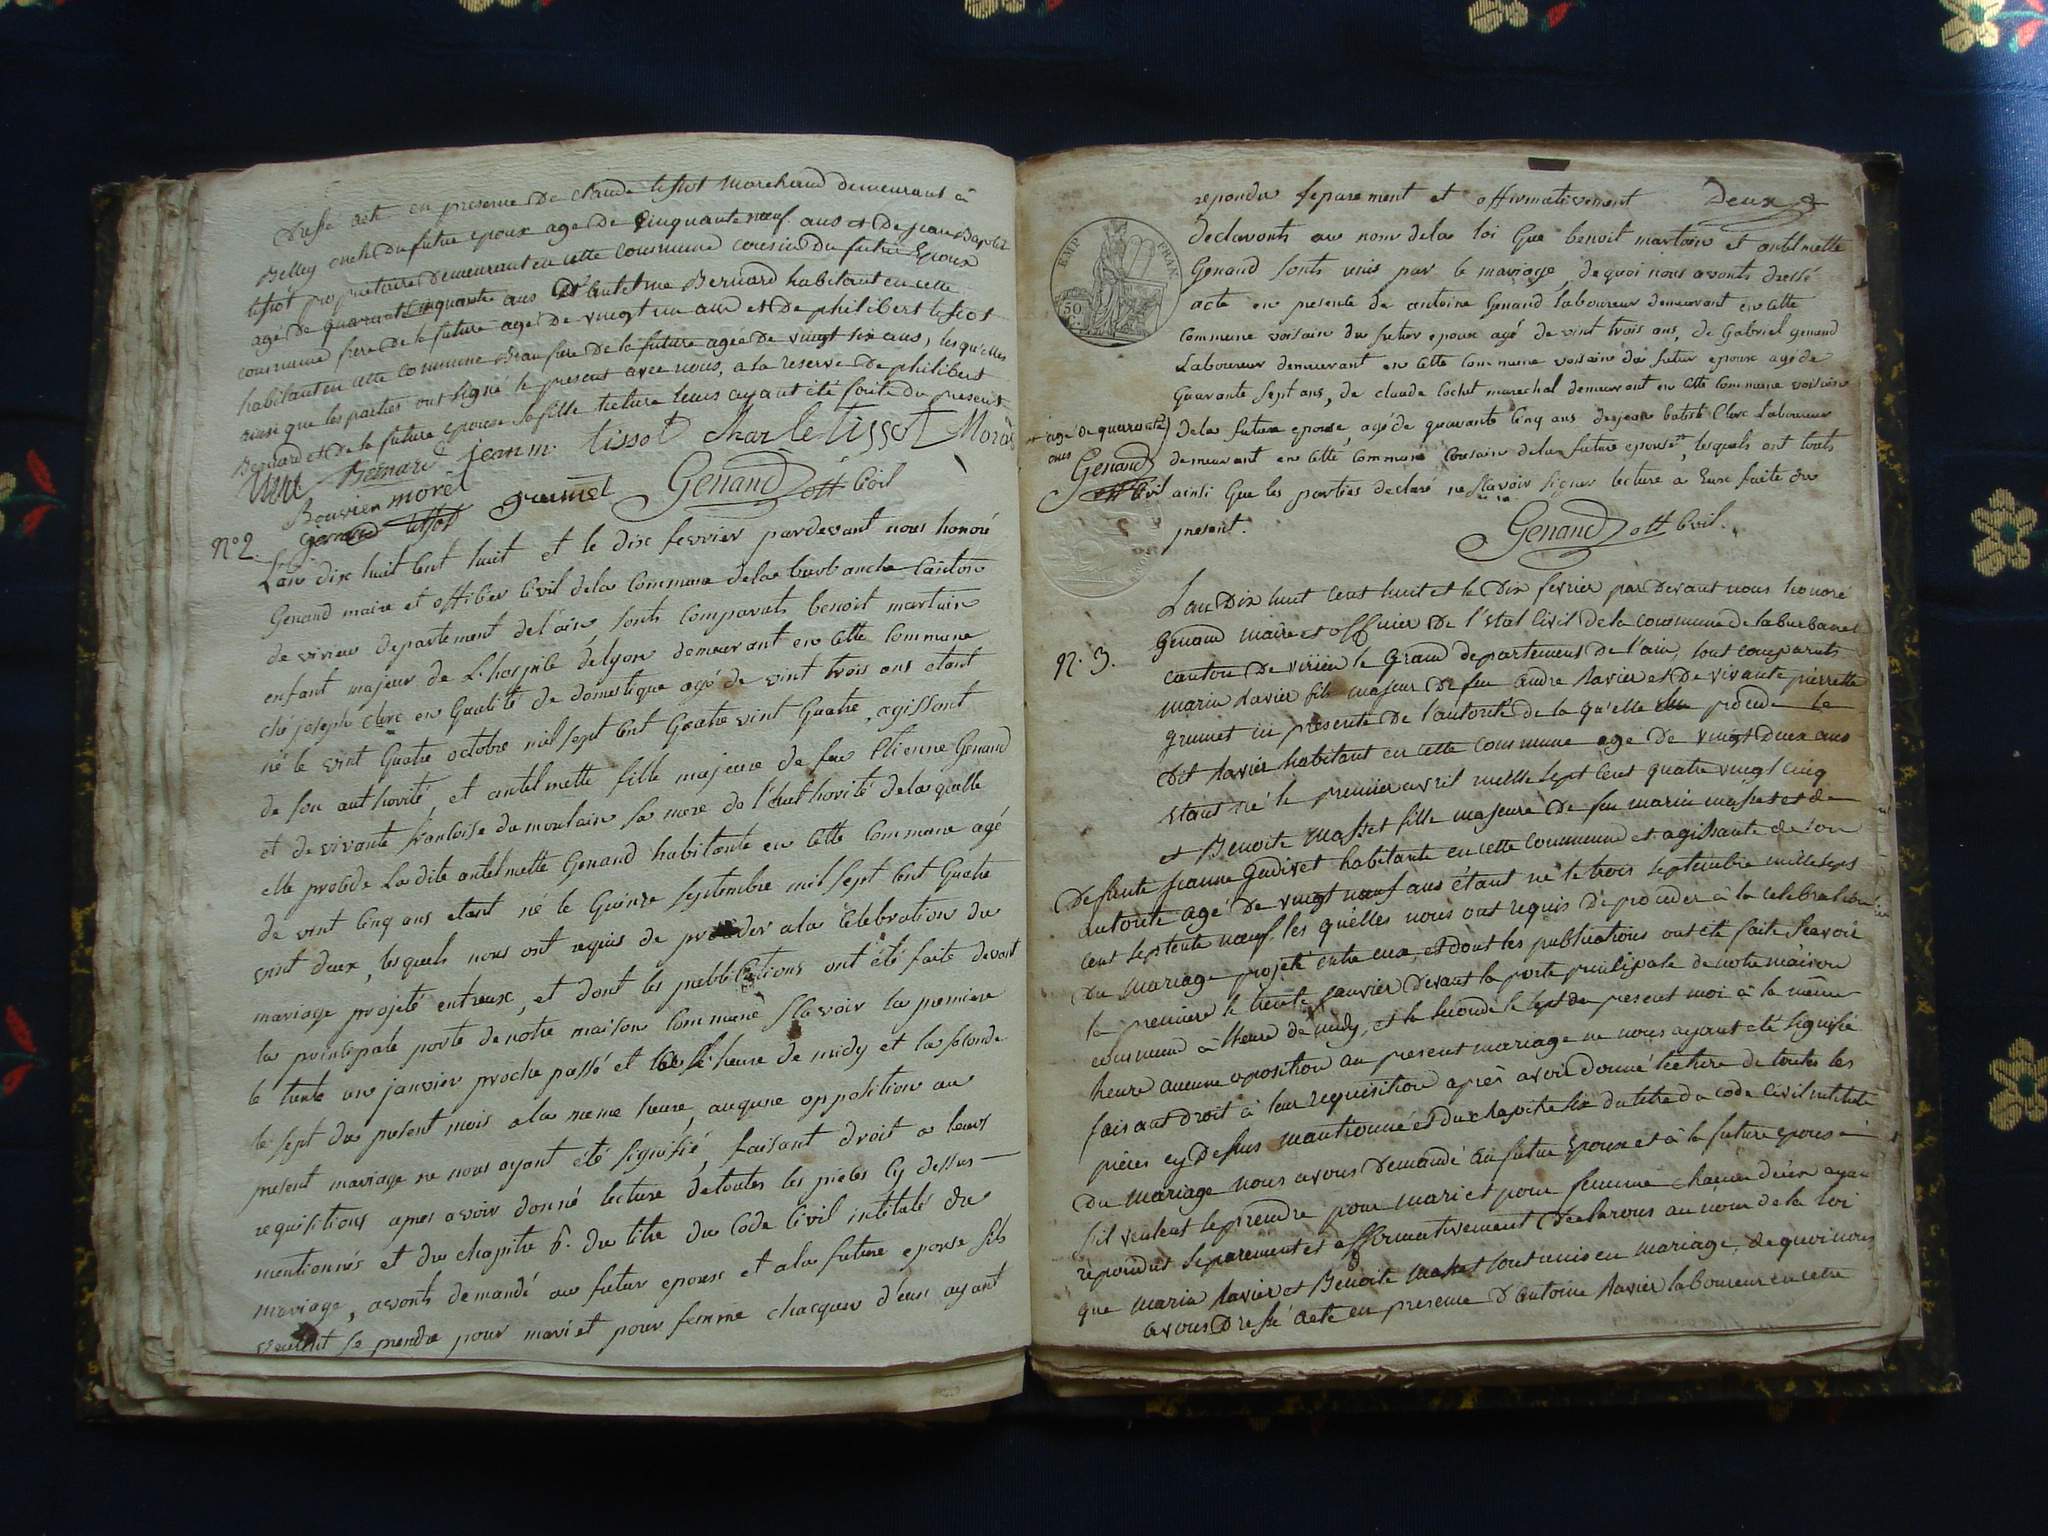 Dressé acte en presence De claude tissot Marchand demeurant à
Belley oncle Du futur epoux age De Cinquante neuf ans et De jean Baptiste
tissot proprietaire Demeurant en cette Commune cousin Du futur Epoux
agé De quarante cinquante ans D'antelme Bernard habitant en cette
commune frere De la future agé De vingt un ans et De philibert tissot
habitant en cette commune Beau frere De la future agée De vingt six ans, lesquelles
ainsi que les parties ont signé le present avec nous, a la reserve De philibert
Bernard et De la future epouse sa fille lecture leurs ayant été faite du present
Bernard jeanin tissot Charle tissot Morel
Bouvier morel
tissot grumet Genand off Civil
N° 2. L'an dix huit cent huit et le dix fevrier pardevant nous honoré
Genand maire et officier Civil dela Commune dela burbanche Canton
de virieu departement del'ain, sonts Comparuts benoit martain
enfant majeur de L'hospile delyon demeurant en Cette Commune
ché joseph clerc en Qualité de domestique agé de vint trois ans etant
né le vint Quatre octobre mil sept cent Quatre vint Quatre, agissant
de son authorité, et antelmette fille majeure de feu Etienne Genand
et de vivante francoise du moulain sa mere de l'authorité dela quelle
elle procede La dite antelmette Genand habitante en Cette Commune agé
de vint cinq ans etant né le Quinze septembre mil sept cent Quatre
vint deux, lesquels nous ont requis de proceder a la Celebration du
mariage projeté entreux, et dont les publications ont été faite devant
la principale porte denotre maison Commune Scavoir la premiere
le trente un janvier proche passé et l'heure de midy et la seconde
le sept du present mois a la meme heure, aucune opposition au
present mariage ne nous ayant été signifié, faisant droit a leurs
requisitions apres avoir donné lecture detoutes les pieces Cy dessus
mentionnés et du chapitre 6. du titre du Code Civil intitulé du
mariage, avonts demandé au futur epoux et ala future epouse sils
veulent se prendre pour mari et pour femme chacqun d'eux ayant
repondu separement et affirmativement Deux
Declaronts au nom dela loi Que benoit martain et antelmette
Genand sonts unis par le mariage, de quoi nous avonts dressé
acte en presente de antoine Genand Laboureur demeurant en Cette
Commune voisain du futur epoux agé de vint trois ans, de Gabriel genand
Laboureur demeurant en Cette Commune voisain du futur epoux agé de
Quarante sept ans, de claude Cochet marechal demeurant en Cette Commune voisin
dela future epouse, agé de quarante Cinq ans de jean batiste Clerc Laboureur
demeurant en Cette Commune Cousain dela future epouse, lesquels ont touts
ainsi Que les parties declaré ne Scavoir signer lecture a Eux faite du
present.
agé de quarante
ans
Genand
off Civil
Genand off Civil.
EMP. FRAN.
50
N. 3. L'an Dix huit Cent huit et le Dix fevrier par Devant nous honoré
Genand maire et officier De l'etat Civil De la commune de la burbanche
canton De virieu le Grand departement De l'ain, sont comparuts
marin Savier fils majeur De feu andre Savier et De vivante pierrette
grumet ici presente De l'autorité de la quelle procede le
dit Savier habitant en cette commune age De vingt deux ans
etant né le premier avril mille sept cent quatre vingt cinq
et Benoite Masset fille majeure De feu marin masset et de
Defunte jeanne Gudivet habitante en cette commune et agissante de son
autorité agé De vingt neuf ans étant né le trois septembre mille sept
cent septente neuf. les quelles nous ont requis De proceder à la celebration
Du Mariage projeté entre eux, et dont les publications ont été faite Scavoir
la premiere le trente janvier Devant la porte principale de notre maison
commune à l'heure de midy, et la seconde le sept du present moi à la meme
heure aucune oposition au present mariage ne nous ayant été signifié
faisant droit à leur requisition après avoir Donné lecture de toutes les
pièces cy Dessus mentionné et Du chapitre six du titre Du code Civil intitulé
Du Mariage nous avons Demandé au futur Epoux et à la future epouse
s'il veulent se prendre pour mari et pour femme chacun deux ayant
répondut séparement et affirmativement Declarons au nom de la Loi
que Marin Savier et Benoite Masset sont unis en Mariage, de quoi nous
avons Dressé Acte en presence D'antoine Savier laboureur en cette